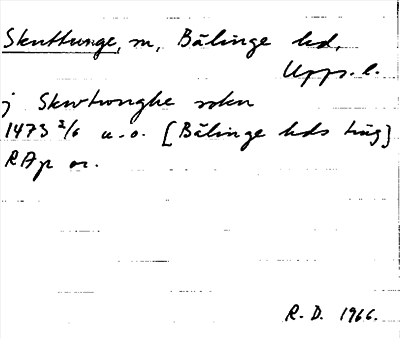 Skuttunge, sn, Bälinge hd,
Upps. l.
j Skwtwnghe sokn
1473 2/6 u. o. [Bälinge hds ting]
RAp or.
R. D. 1966.